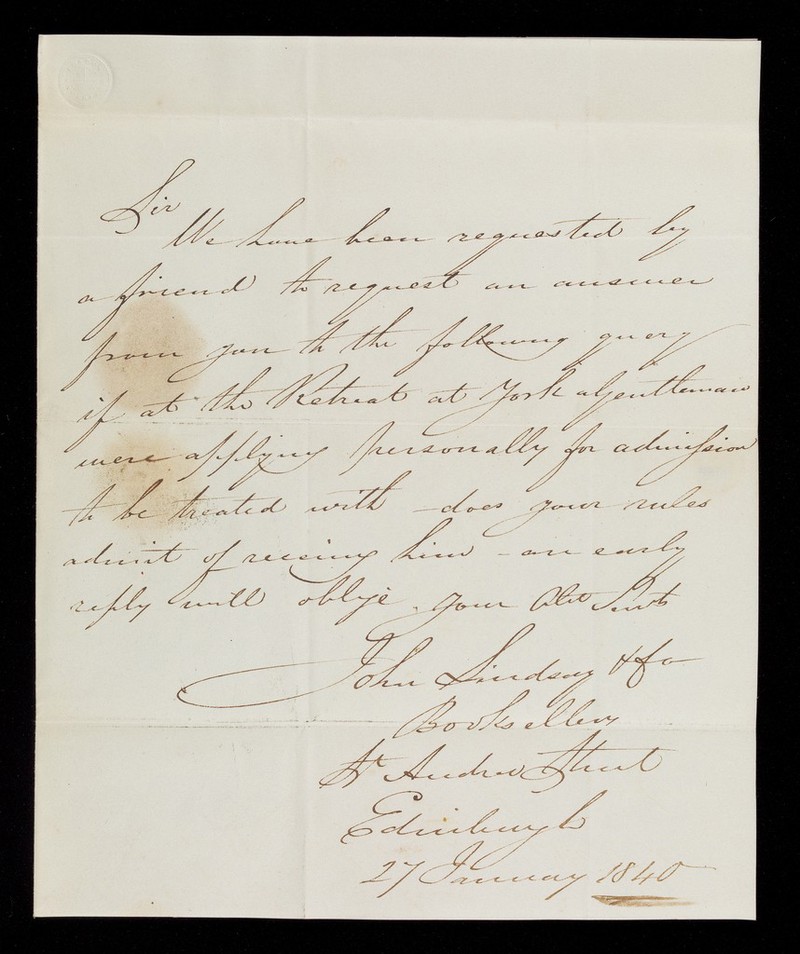 Sir
We have been requested by
a friend to request an answer
from you to the following query
if at the Retreat at York a Gentleman
were applying personally for admission
to be treated with - does your rules
admit of receiving him - an early
reply will oblige your Obt Servts
John Lindsay & Co
Booksellers
St Andrew Street
Edinburgh
27 January 1840